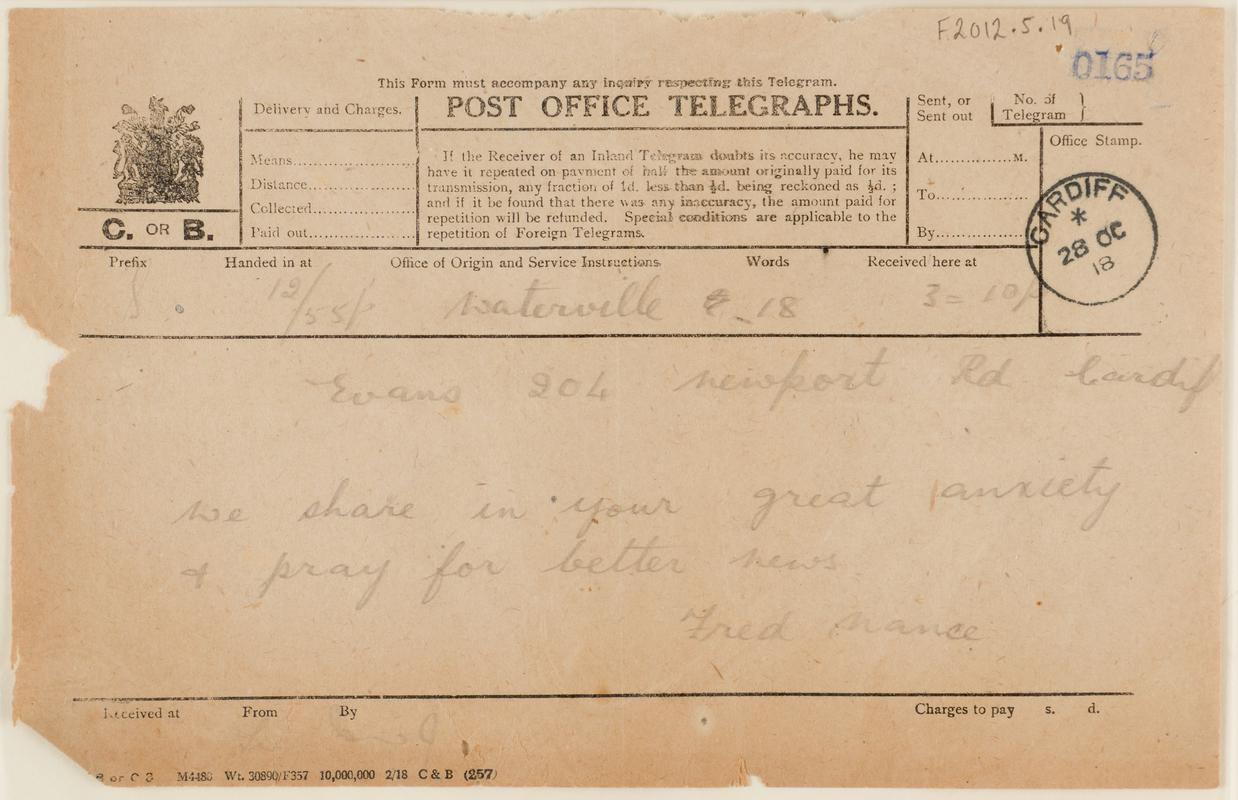 F2012.5.19
0165
This Form must accompany any inquiry respecting this Telegram.
Delivery and Charges.
POST OFFICE TELEGRAPHS.
Sent, or
Sent out
No. of
Telegram
Office Stamp.
Means
Distance
Collected
Paid out
If the Receiver of an Inland Telegram doubts its accuracy, he may
have it repeated on payment of half the amount originally paid for its
transmission, any fraction of 1d. less than ½d. being reckoned as ½d. ;
and if it be found that there was any inaccuracy, the amount paid for
repetition will be refunded. Special conditions are applicable to the
repetition of Foreign Telegrams.
At............M.
To
By
CARDIFF
*
28 OC
18
C. OR B.
Prefix Handed in at Office of Origin and Service Instructions. Words Received here at
12/55p Waterville 18 3=10p
Evans 204 Newport Rd Cardif
we share in your great anxiety
& pray for better news
Fred Nance
Received at From By Charges to pay s. d.
M4480 Wt. 30890/F357 10,000,000 2/18 C & B (257)